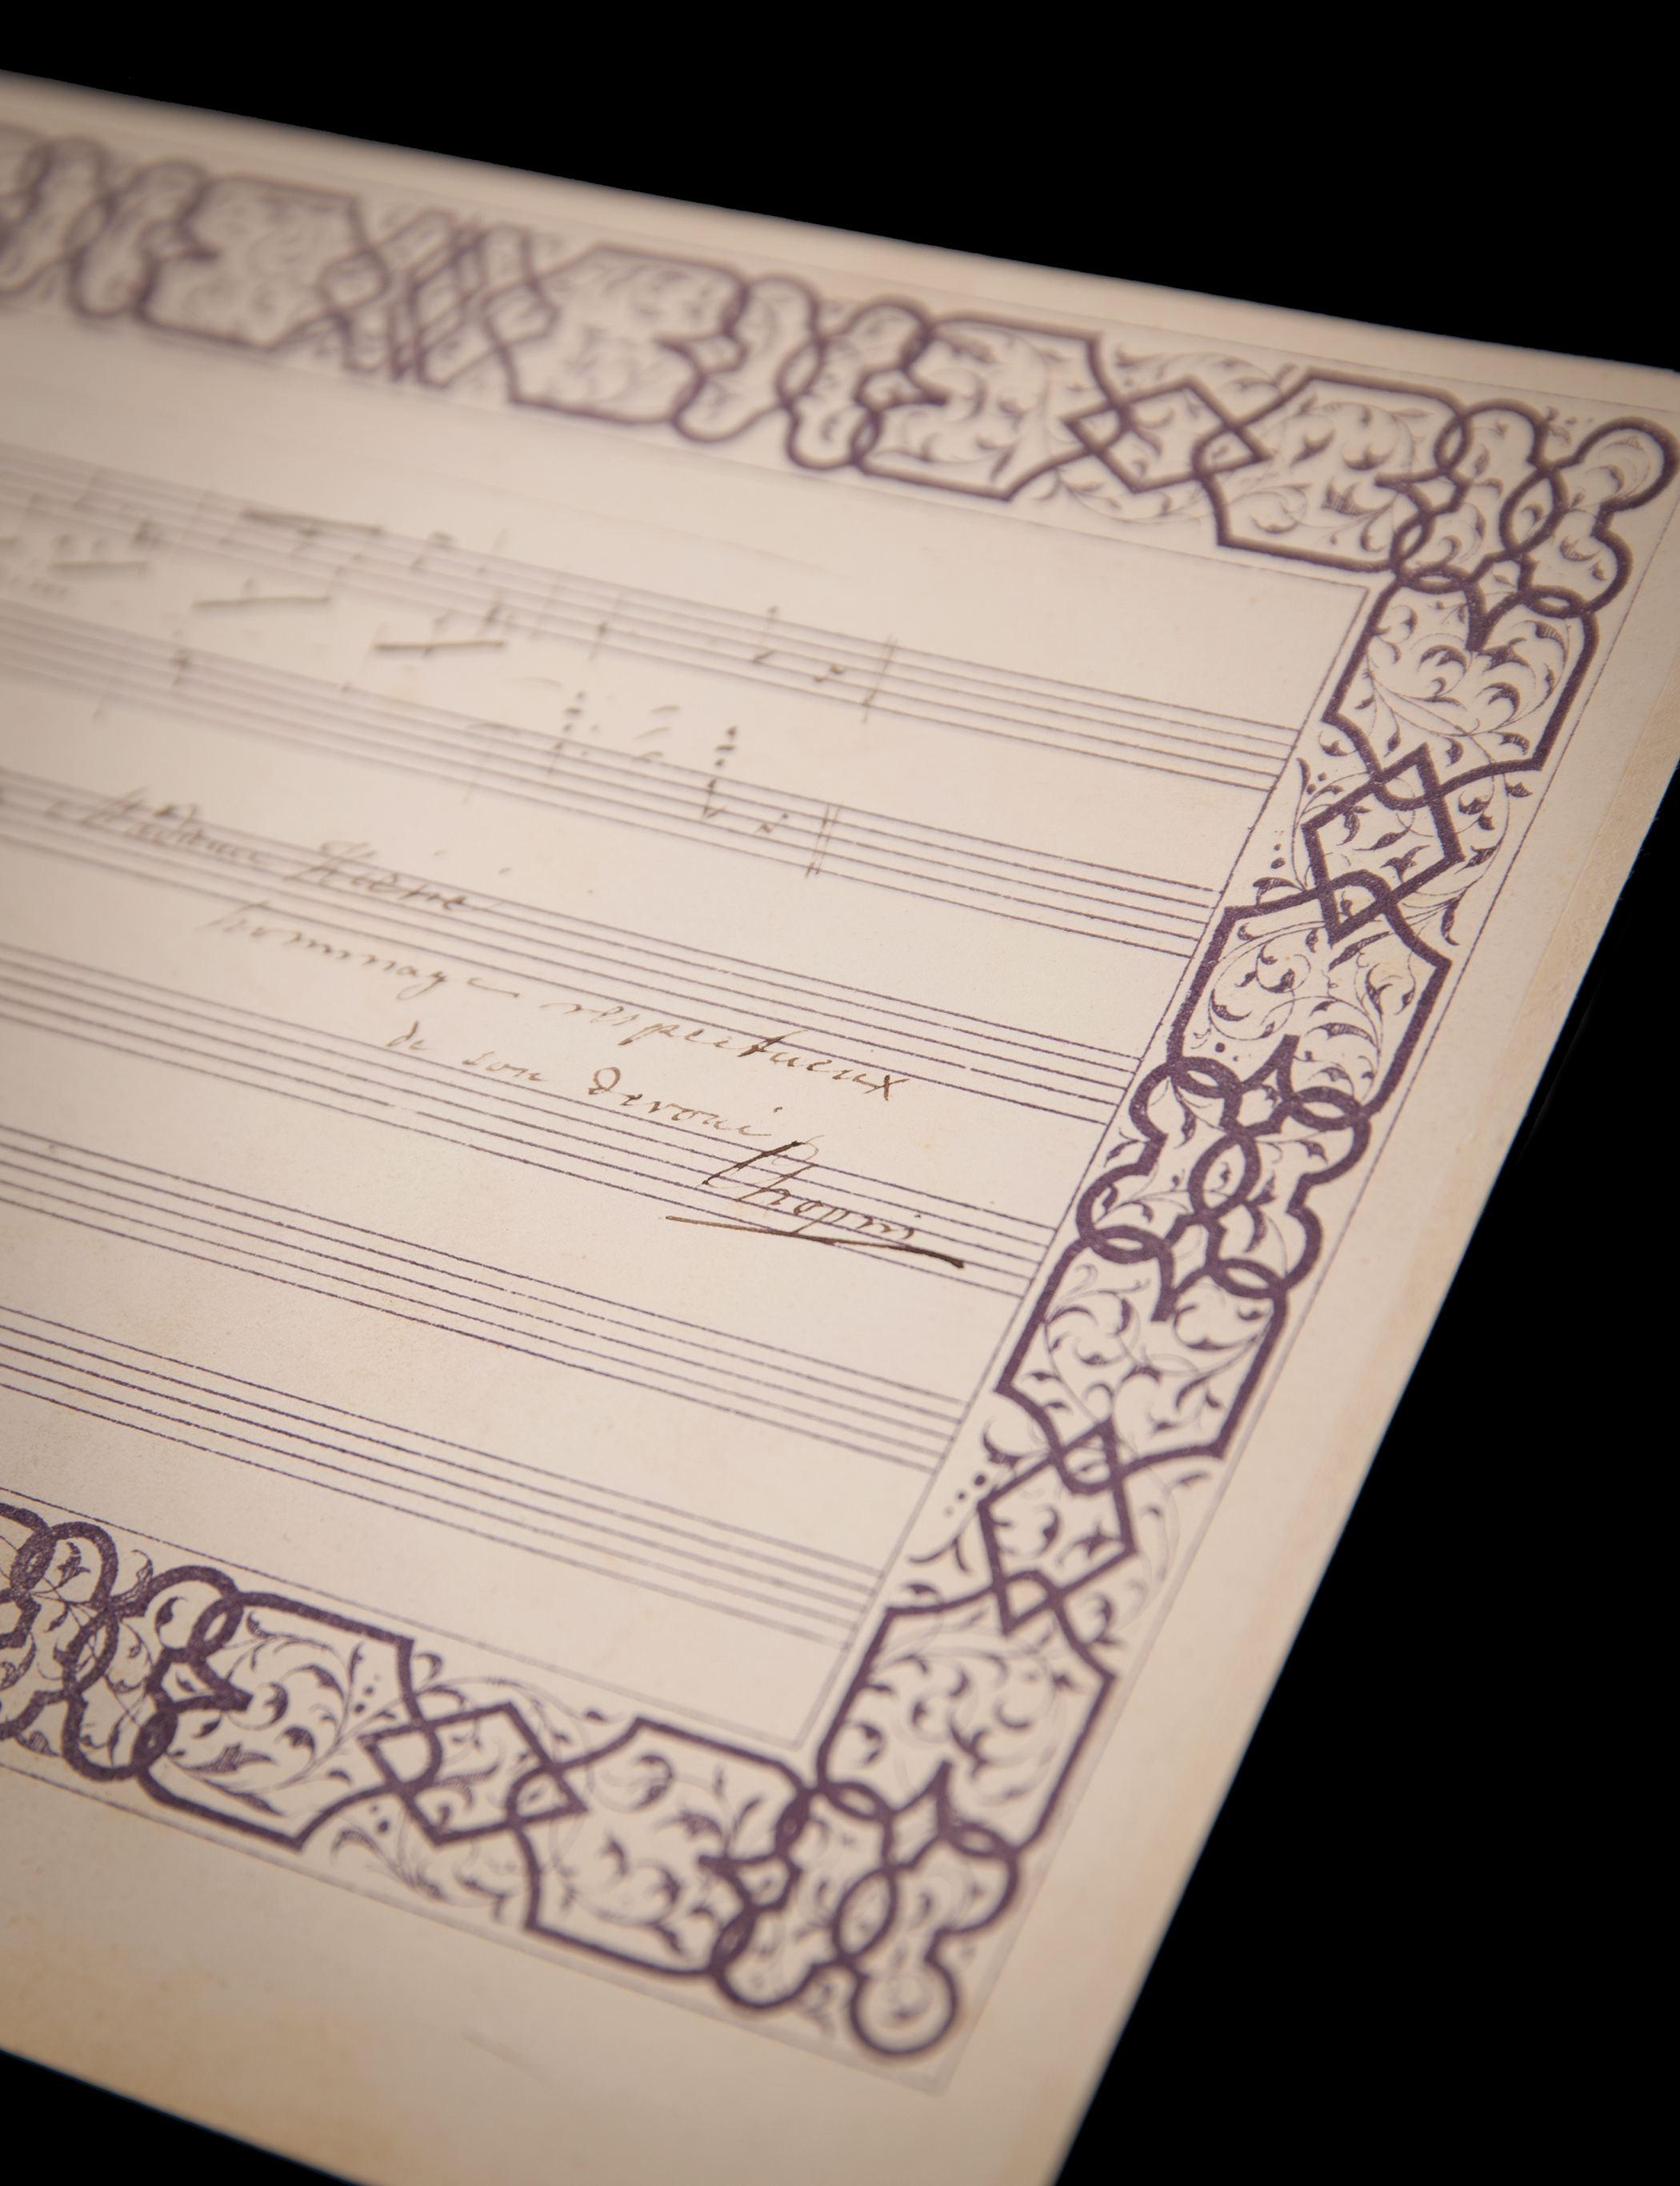 Madame Hiéné
hommage respectueux
de son devoué
Chopin